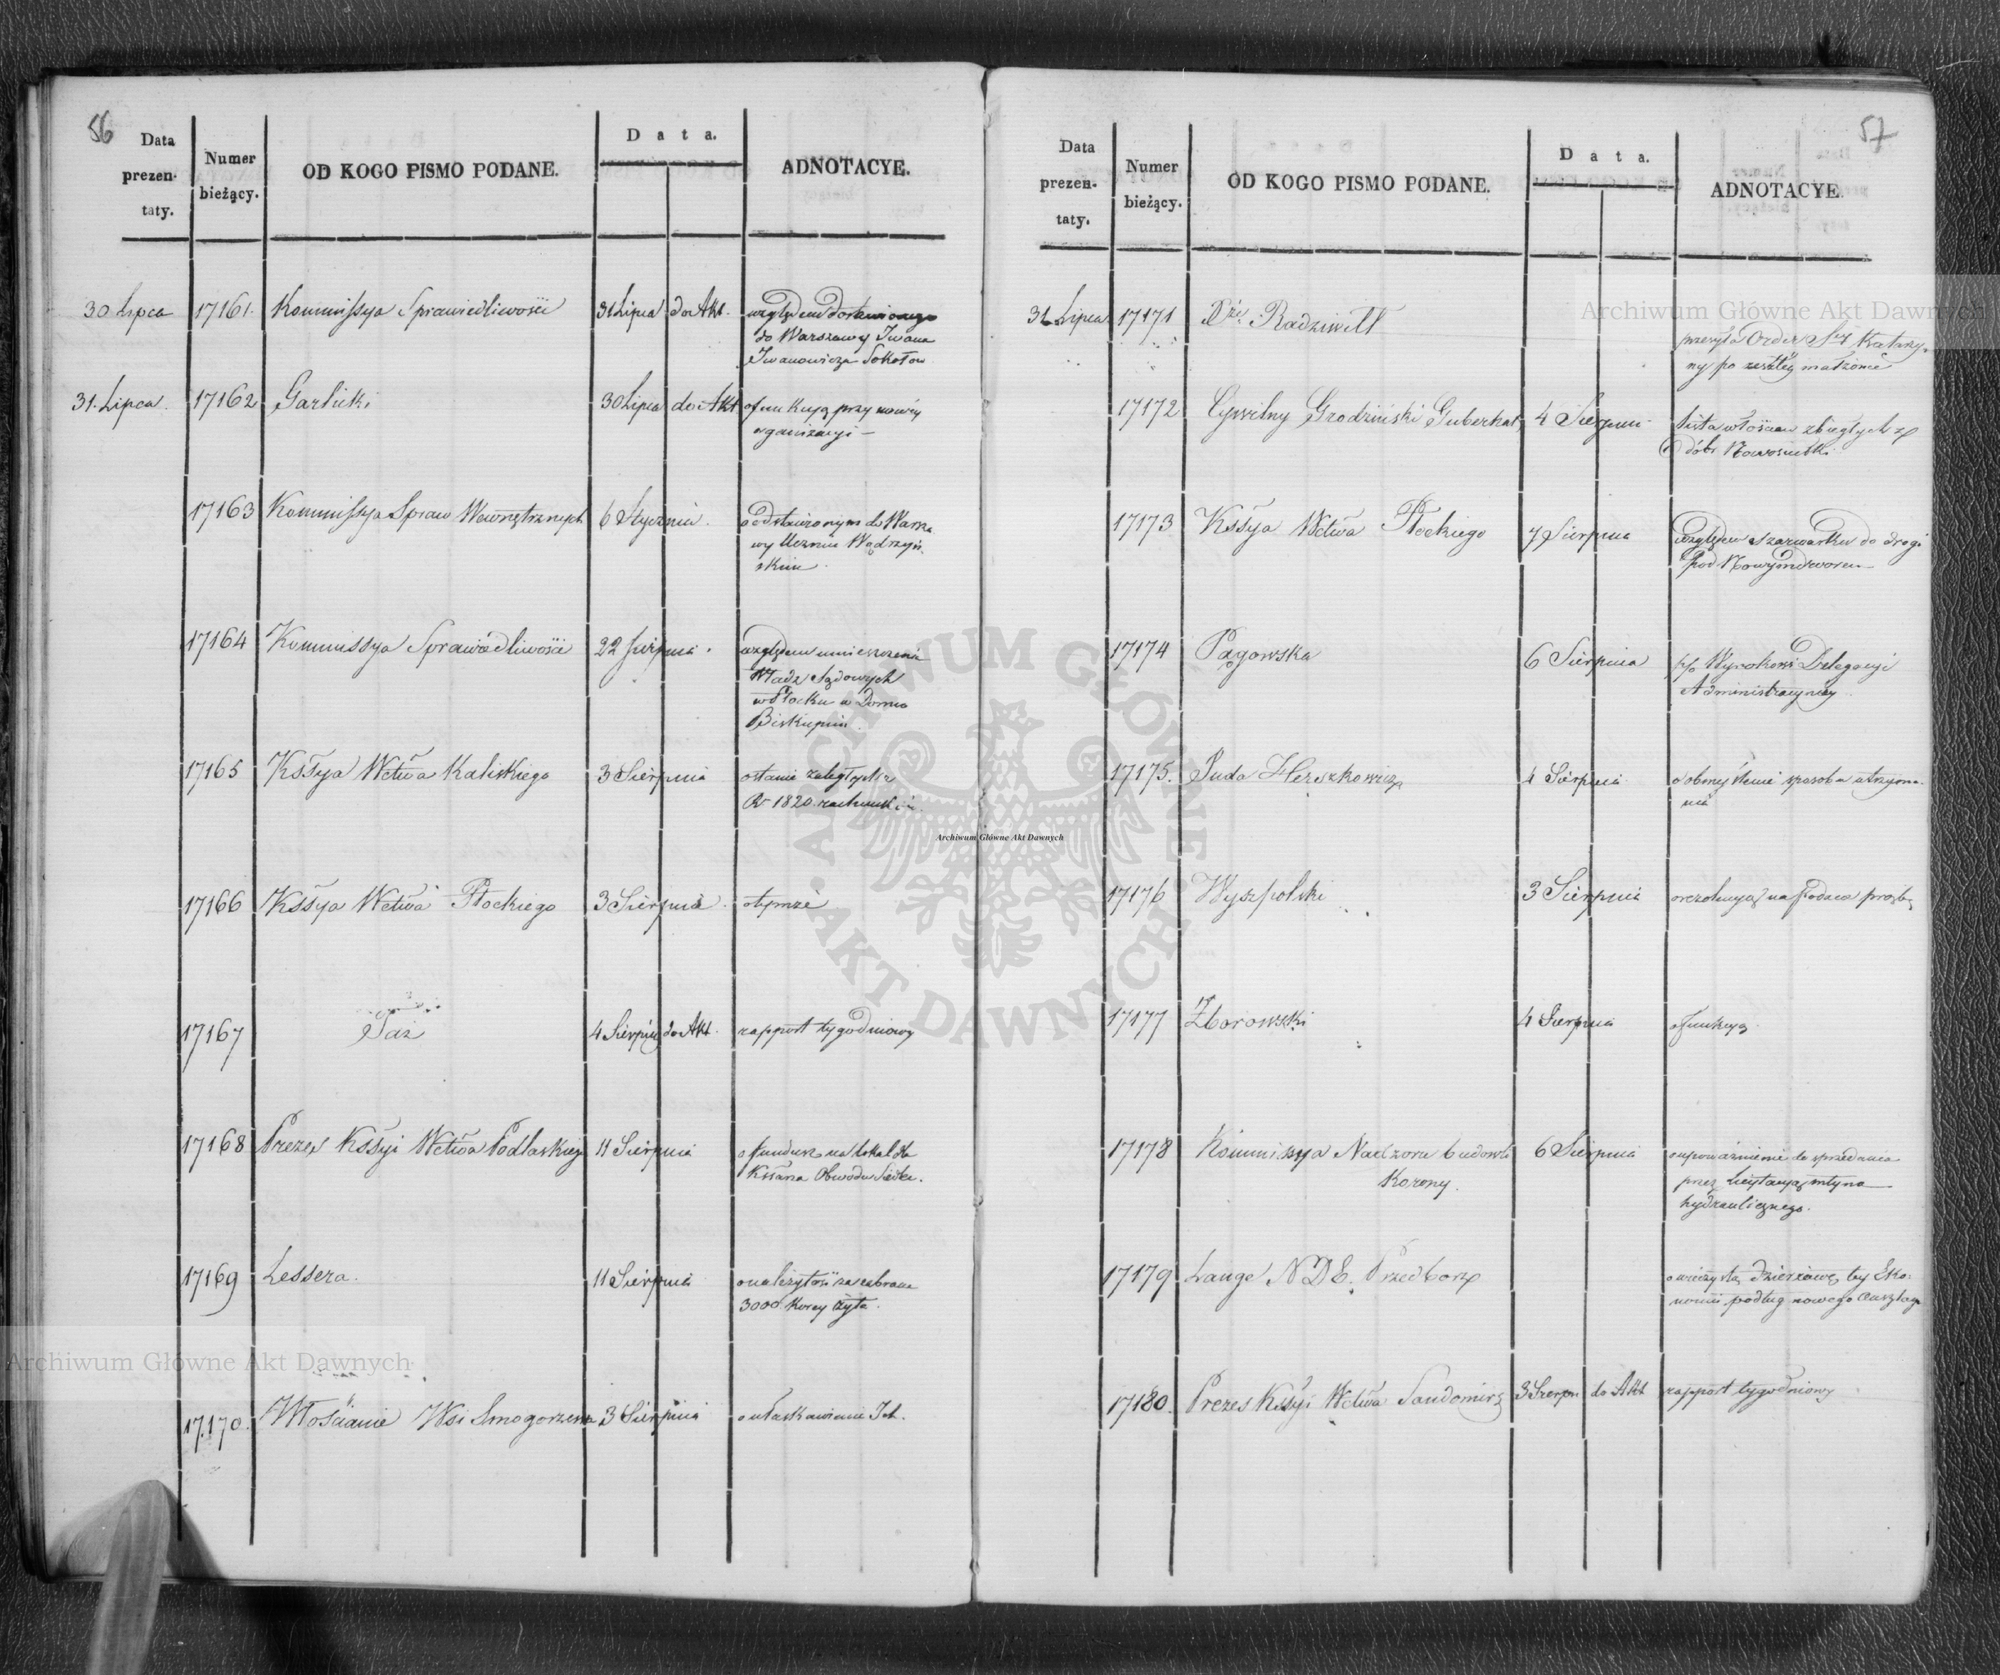 56
Data
prezen-
taty.
Numer
bieżący.
OD KOGO PISMO PODANE.
Data.
ADNOTACYE.
30 Lipca 17161. Kommissya Sprawiedliwości 31 Lipca do Akt. względem dostawionego
do Warszawy Iwana
Iwanowicza Sokołow
31. Lipca. 17162 Garlicki 30 Lipca do Akt o funkcyą przy nowéy
organizacyi
17163 Kommissya Spraw Wewnętrznych 6 Stycznia. o odstawionym do Warsza
wy Uczniu Wądrzyń
skim.
17164 Kommissya Sprawiedliwości 22 Sierpnia. względem umieszczenia
Władz Sądowych
w Płocku w Domu
Biskupim.
17165 Kssya Wctwa Kaliskiego 3 Sierpnia o stanie zaległych z
R. 1820. rachunków
17166 Kssya Wctwa Płockiego 3 Sierpnia. o tymże
17167 Taż 4 Sierpnia do Akt. rapport tygodniowy
17168 Prezes Kssyi Wctwa Podlaskiego 11 Sierpnia o fundusz na lokal dla
Kssarza Obwodu Siedlec.
17169 Lessera. 11 Sierpnia o należytość za zabrane
3000 korcy żyta.
17170. Włościanie Wsi Smogorzewa 3 Sierpnia o ułaskawienie Ich.
57
Data
prezen-
taty.
Numer
bieżący.
OD KOGO PISMO PODANE.
Data.
ADNOTACYE.
31 Lipca 17171 Xże Radziwiłł przesyła Order Stéy Katarzy-
ny po zeszłéy małżonce
17172 Cywilny Grodziński Guberkat 4 Sierpnia lista włościan zbiegłych z
dóbr
17173 Kssya Wctwa Płockiego 7 Sierpnia względem szarwarku do drogi
pod Nowymdworem
17174 Pągowska 6 Sierpnia Wyrokowi Delegacyi
Administracyinéy.
17175. Juda Herszkowicz 4 Sierpnia o obmyślenie sposobu utrzyma-
nia
17176 Wyszpolski 3 Sierpnia o rezolucyą na podaną prośbę
17177 Zborowski 4 Sierpnia o funkcyą
17178 Kommissya Nadzoru budowli 6 Sierpnia o upoważnienie do sprzedania
Korony. przez licytacyą młyna
hydraulicznego.
17179 Lange NDE. Przedborz o wieczystą dzierżawę téy Eko-
nomii podług nowego Anszlagu
17180. Prezes Kssyi Wctwa Sandomirs 3 Sierpn do Akt rapport tygodniowy
Archiwum Główne Akt Dawnych
ARCHIWUM GŁÓWNE AKT DAWNYCH
Archiwum Główne Akt Dawnych
Archiwum Główne Akt Dawnych